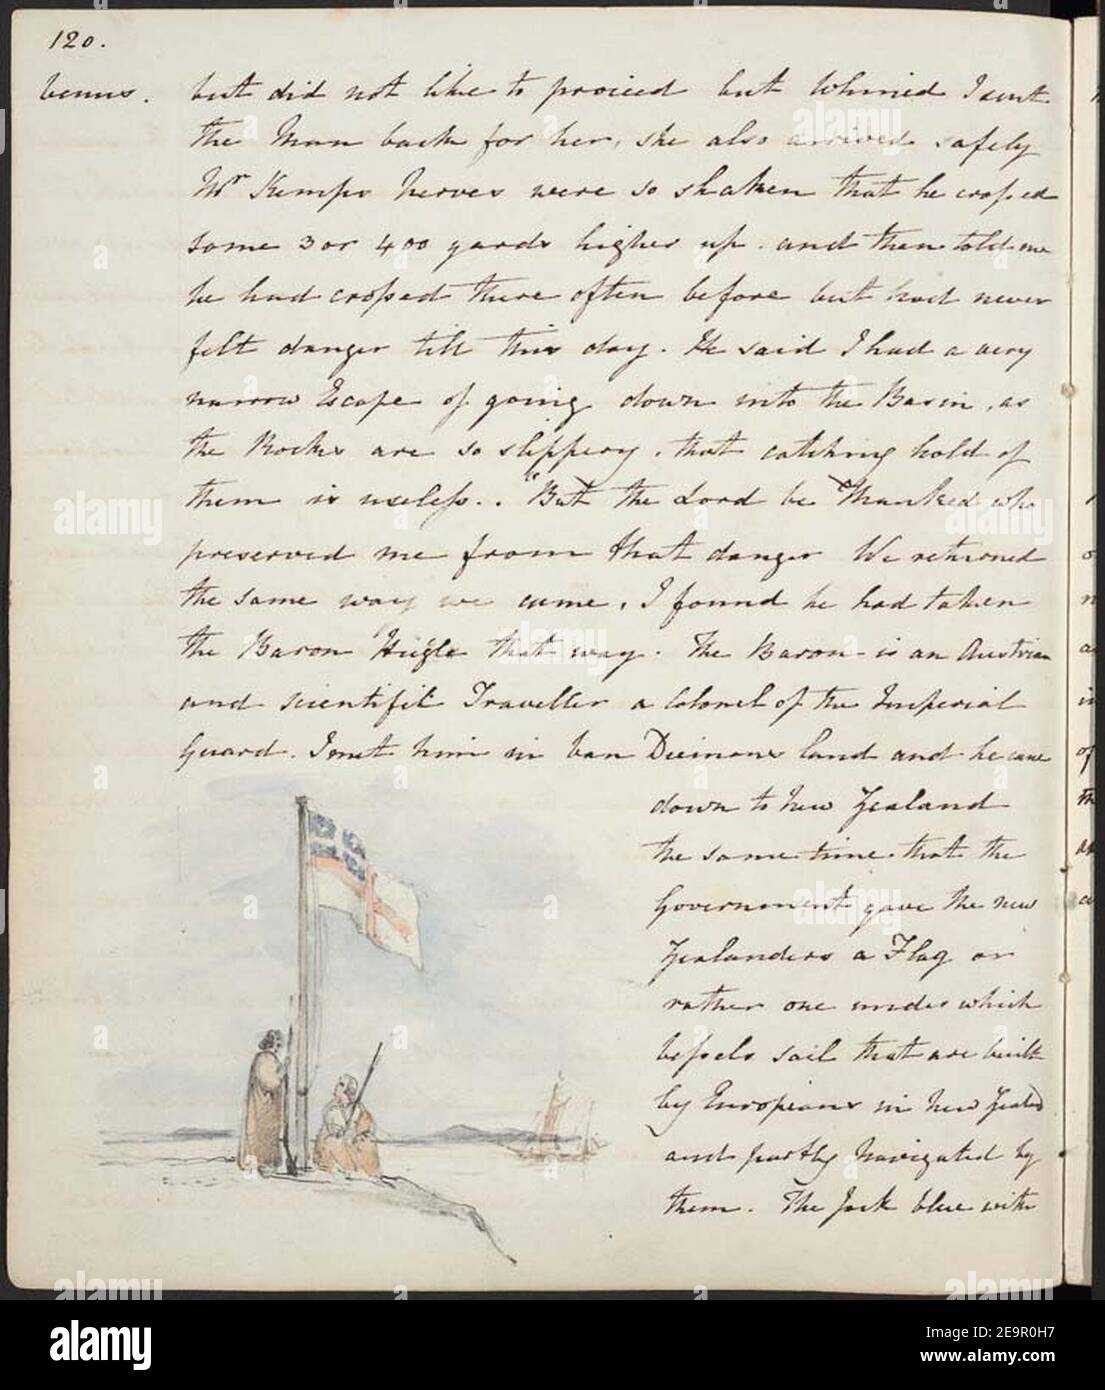 120.
Venus. but did not like to proceed but whined I sent
the Man back for her, she also arrived safely
Mr Kemps Nerves were so shaken that he crossed
some 3 or 400 yards higher up. and then told me
he had crossed there often before but had never
felt danger till this day. He said I had a very
narrow Escape of going down into the Basin, as
the Rocks are so slippery, that catching hold of
them is useless.. "But the Lord be Thanked who
preserved me from that danger We returned
the same way we came, I found he had taken
the Baron Hügle that way. The Baron is an Austrian
and scientific Traveller a Colonel of the Imperial
Guard. I met him in Van Diemans land and he came
down to New Zealand
the same time that the
Government gave the New
Zealanders a Flag or
rather one under which
Vessels sail that are built
by Europeans in New Zealand
and partly Navigated by
them. The Jack blue with
alamy
Image ID: 2E9R0H7
www.alamy.com